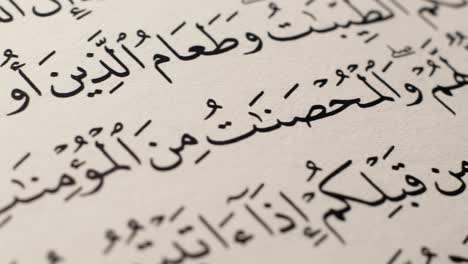 ٱلطَّيِّبَٰتُ وَطَعَامُ ٱلَّذِينَ أُو
لَّهُمْ وَٱلْمُحْصَنَٰتُ مِنَ ٱلْمُؤْمِنَٰتِ
مِن قَبْلِكُمْ إِذَآ ءَاتَيْتُ